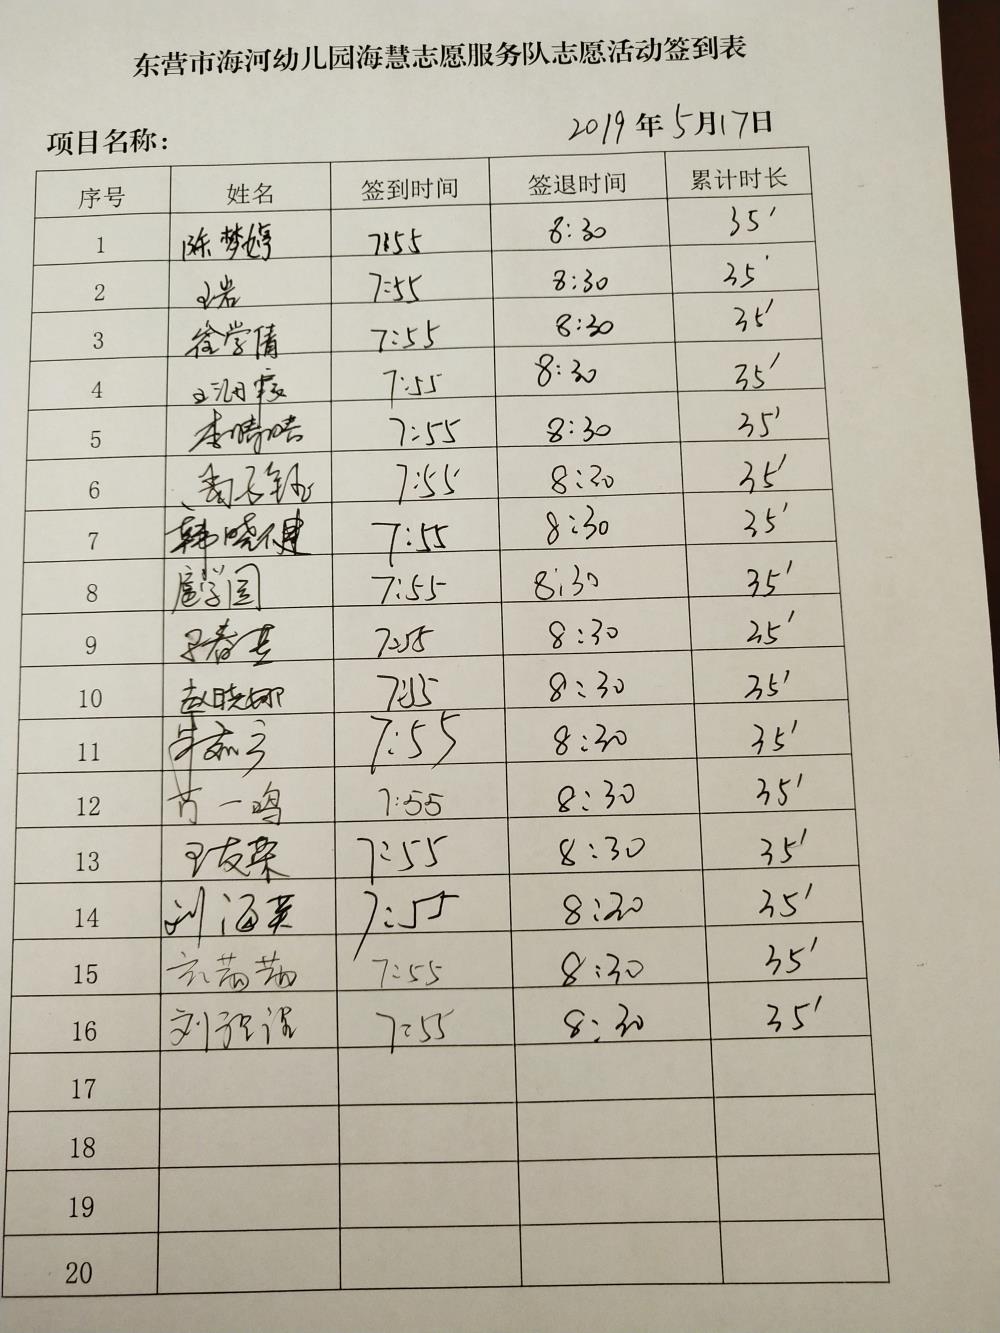 东营市海河幼儿园海慧志愿服务队志愿活动签到表
项目名称： 2019年5月17日
序号 姓名 签到时间 签退时间 累计时长
1 陈梦婷 7:55 8:30 35'
2 王岩 7:55 8:30 35'
3 徐学倩 7:55 8:30 35'
4 7:55 8:30 35'
5 李晴晴 7:55 8:30 35'
6 7:55 8:30 35'
7 韩晓健 7:55 8:30 35'
8 7:55 8:30 35'
9 7:55 8:30 35'
10 赵晓娜 7:55 8:30 35'
11 7:55 8:30 35'
12 一鸣 7:55 8:30 35'
13 王友荣 7:55 8:30 35'
14 刘海英 7:55 8:30 35'
15 7:55 8:30 35'
16 刘 7:55 8:30 35'
17
18
19
20